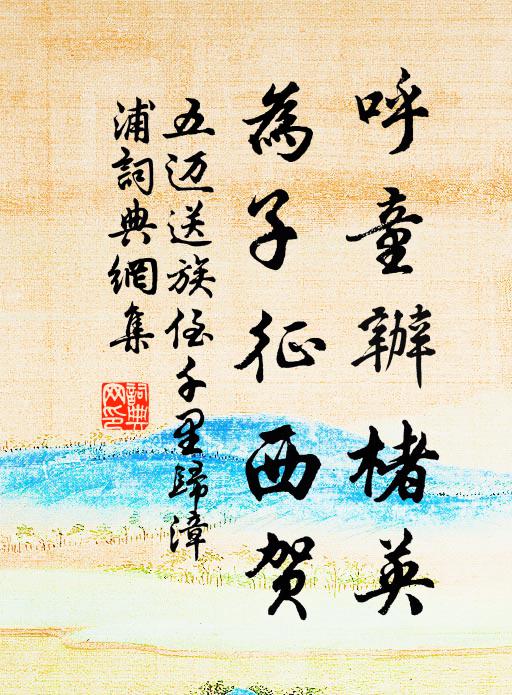 呼童辦楮英
為子征西賀
五迈送族侄千里歸漳
浦詞典網集
詞典
网印